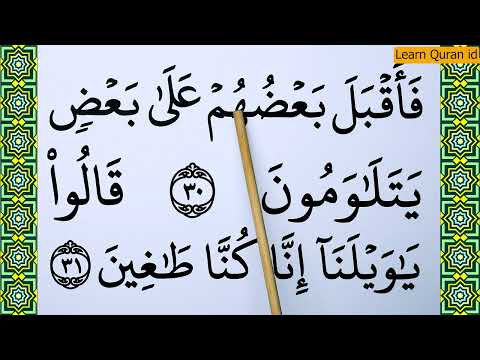 Learn Quran id
فَأَقۡبَلَ بَعۡضُهُمۡ عَلَىٰ بَعۡضٖ
يَتَلَٰوَمُونَ ٣٠ قَالُواْ
يَٰوَيۡلَنَآ إِنَّا كُنَّا طَٰغِينَ ٣١